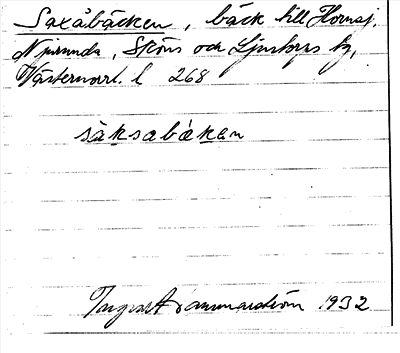 Saxåbäcken, bäck till Hornsj.
Njurunda, Sköns och Ljustorps tg,
Västernorrl. l 268
sàksabä́ken
Ingvar Hammarström 1932